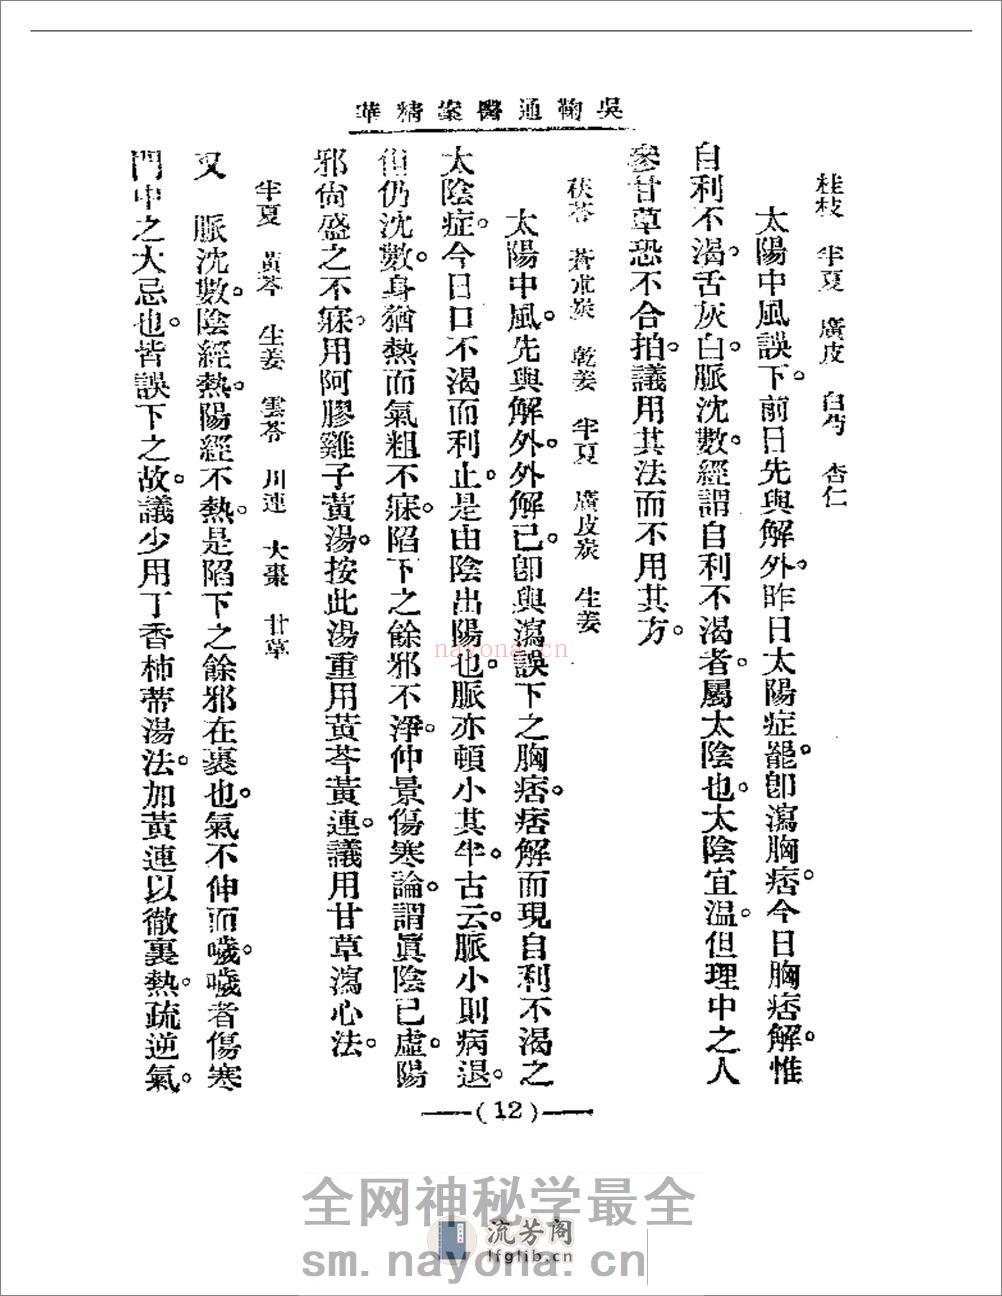 吳鞠通醫案精華
桂枝　半夏　廣皮　白芍　杏仁
太陽中風誤下。前日先與解外。昨日太陽症罷。卽瀉胸痞。今日胸痞解。惟
自利不渴。舌灰白。脈沈數。經謂自利不渴者。屬太陰也。太陰宜温。但理中之人
參甘草恐不合拍。議用其法而不用其方。
茯苓　蒼朮炭　乾姜　半夏　廣皮炭　生姜
太陽中風。先與解外。外解已。卽與瀉誤下之胸痞。痞解而現自利不渴之
太陰症。今日口不渴而利止。是由陰出陽也。脈亦頓小其半。古云。脈小則病退。
但仍沈數。身猶熱而氣粗不寐。陷下之餘邪不淨。仲景傷寒論。謂眞陰已虛。陽
邪尙盛之不寐。用阿膠雞子黃湯。按此湯重用黃芩黃連。議用甘草瀉心法。
半夏　黃芩　生姜　雲苓　川連　大棗　甘草
又　脈沈數。陰經熱。陽經不熱。是陷下之餘邪在裏也。氣不伸而噦。噦者傷寒
門中之大忌也。皆誤下之故。議少用丁香柿蒂湯法。加黃連以徹裏熱。疏逆氣。
(12)
nayona.cn
全网神秘学最全
流芳阁
lfglib.cn
sm.nayona.cn